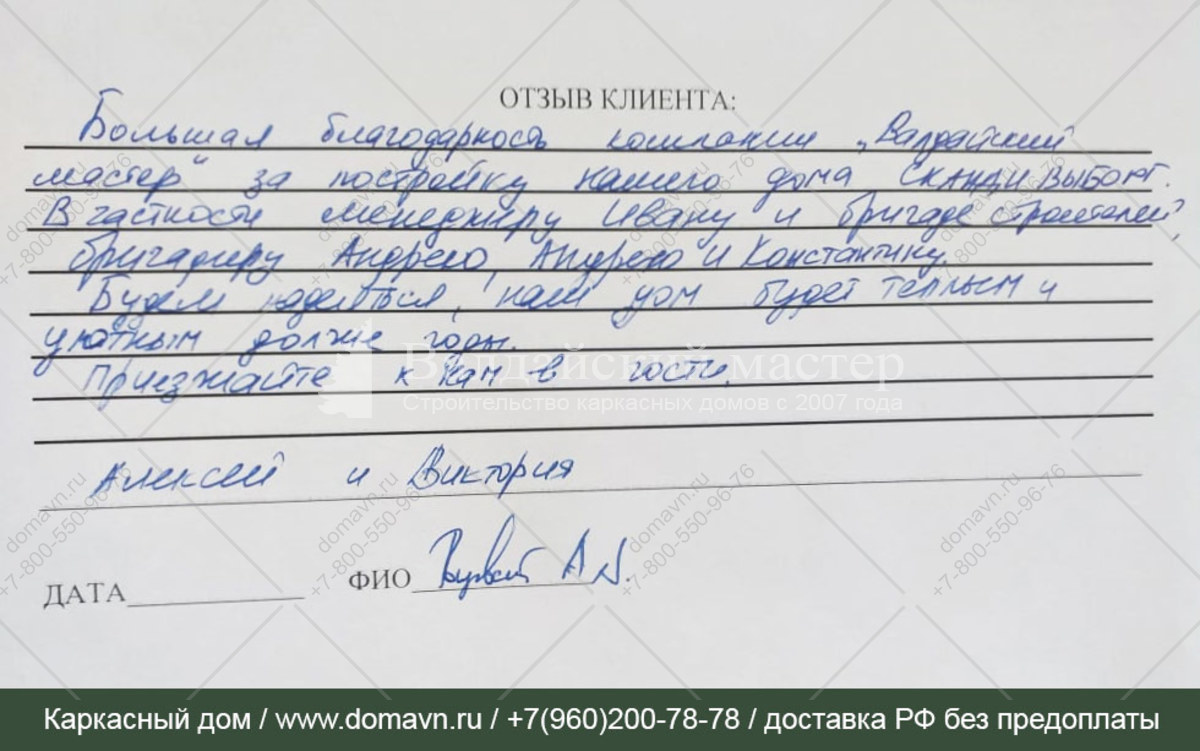 ОТЗЫВ КЛИЕНТА:
Большая благодарность компании „Валдайский
мастер" за постройку нашего дома СКАНДИ ВЫБОРГ.
В частности менеджеру Ивану и бригаде строителей,
бригадиру Андрею, Андрею и Константину.
Будем надеяться, наш дом будет теплым и
уютным долгие годы.
Приезжайте к нам в гости.
Валдайский мастер
Строительство каркасных домов с 2007 года
Алексей и Виктория
ДАТА ФИО
domavn.ru
+7-800-550-96-76
Каркасный дом / www.domavn.ru / +7(960)200-78-78 / доставка РФ без предоплаты